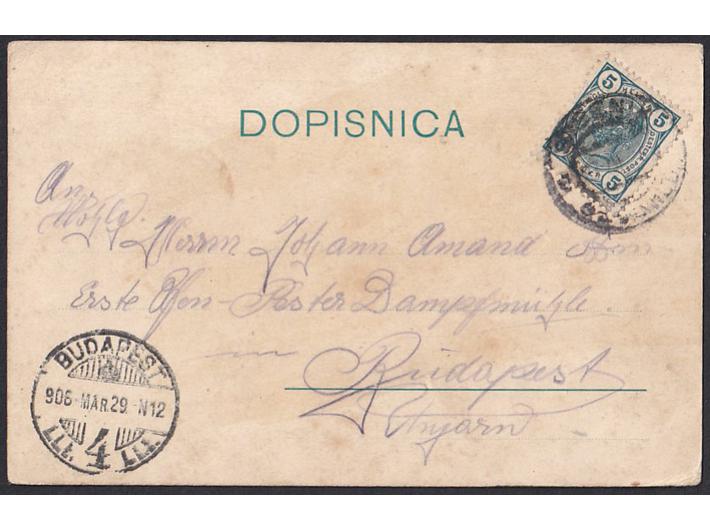 DOPISNICA
5 5
5
An
Wohlg. Herrn Johann Amand
Erste Ofen-Pester Dampfmühle.
in Budapest
Ungarn
BUDAPEST
906-MAR.29-N12
4